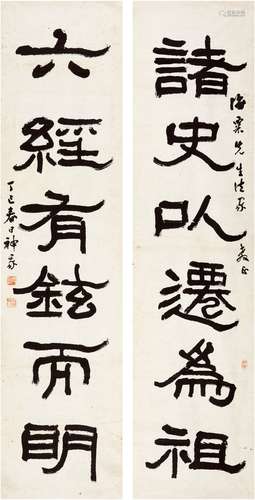 海粟先生法家教正
諸史以遷為祖
六經有鉉而明
丁巳春日